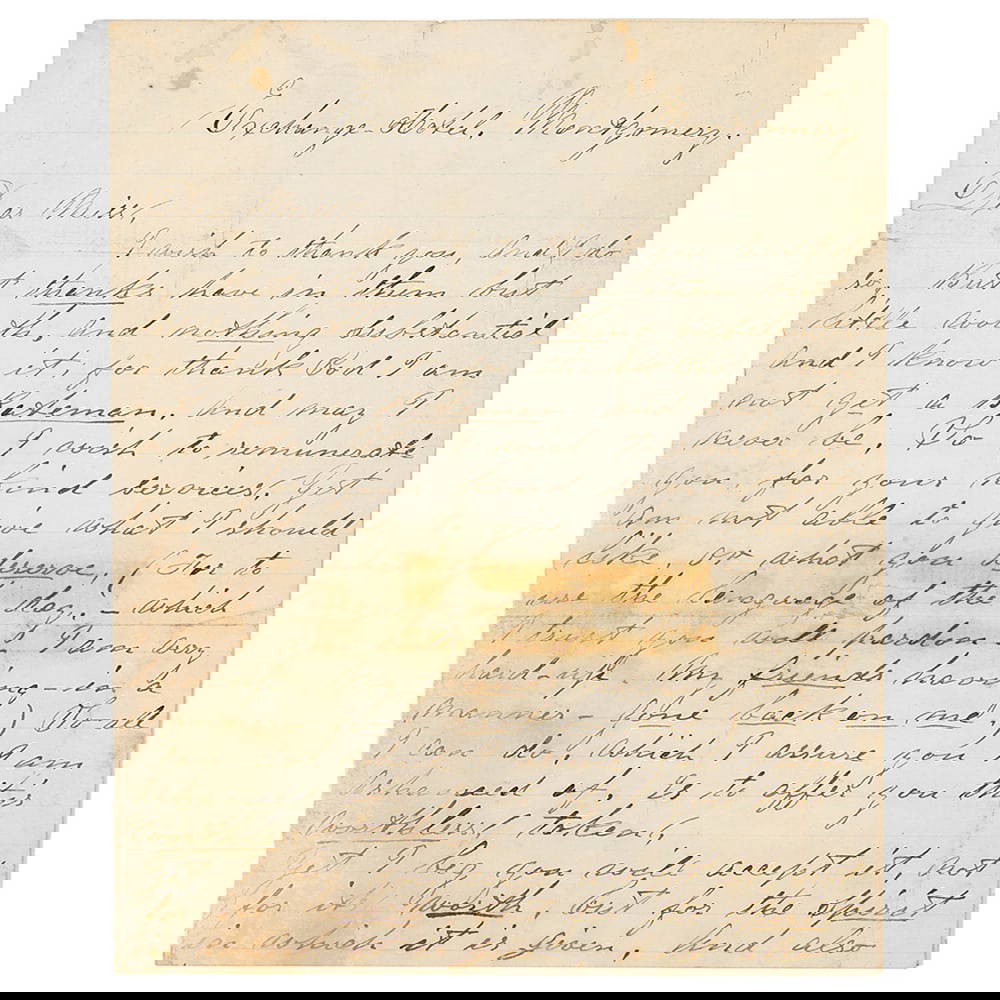 Exchange Hotel. Montgomery.
Dear
I wish to thank you, And I do
so, But thanks have in them but
little worth, And nothing substantial
And I know it; for thank God I am
not yet a and may I
never be. Tho' I wish to remunerate
you, for your kind services, Yet
am not able to give what I should
like, or what you deserve, (For to
use the language of the Play, - which
I trust you will pardon - I am very
hard-up. My friends having - in a
manner - gone back on me,) The all
I can do, which I assure you I am
ashamed of, is to offer you this
worthless token,
Yet I beg you will accept it, not
for its worth, but for the spirit
in which it is given, And also